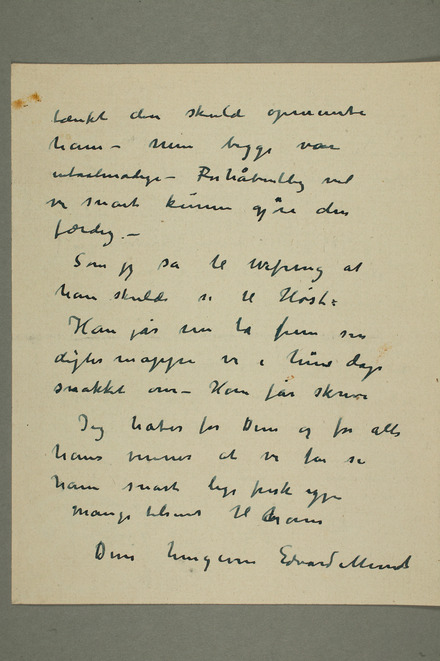 tænkt den skulde opmuntre
ham – men begge var
utaalmodige – Forhåbentlig vil
vi snart kunne gjøre den
færdig –
Som jeg sa til
han skulde se til Høst =
Han får nu ta frem sin
digter mappe vi i hine dage
snakket om – Han får skrive
Jeg håber for Dem og for alle
hans venner at vi får se
ham snart lige frisk igjen
Mange hilsener til ham
Deres hengivne Edvard Munch